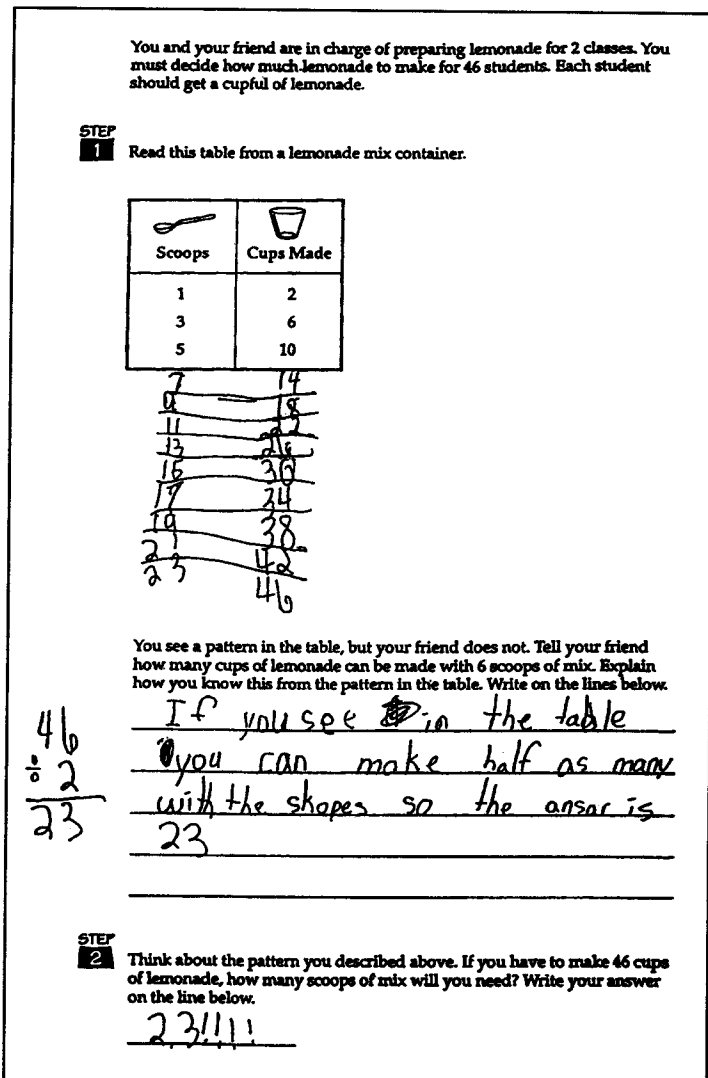 You and your friend are in charge of preparing lemonade for 2 classes. You
must decide how much lemonade to make for 46 students. Each student
should get a cupful of lemonade.
STEP
1 Read this table from a lemonade mix container.
Scoops Cups Made
1 2
3 6
5 10
7 14
9 18
11
13 26
15 30
17 34
19 38
21 42
23 46
You see a pattern in the table, but your friend does not. Tell your friend
how many cups of lemonade can be made with 6 scoops of mix. Explain
how you know this from the pattern in the table. Write on the lines below.
46
÷ 2
23
If you see in the table
you can make half as many
with the skopes so the ansar is
23
STEP
2 Think about the pattern you described above. If you have to make 46 cups
of lemonade, how many scoops of mix will you need? Write your answer
on the line below.
23!!!!